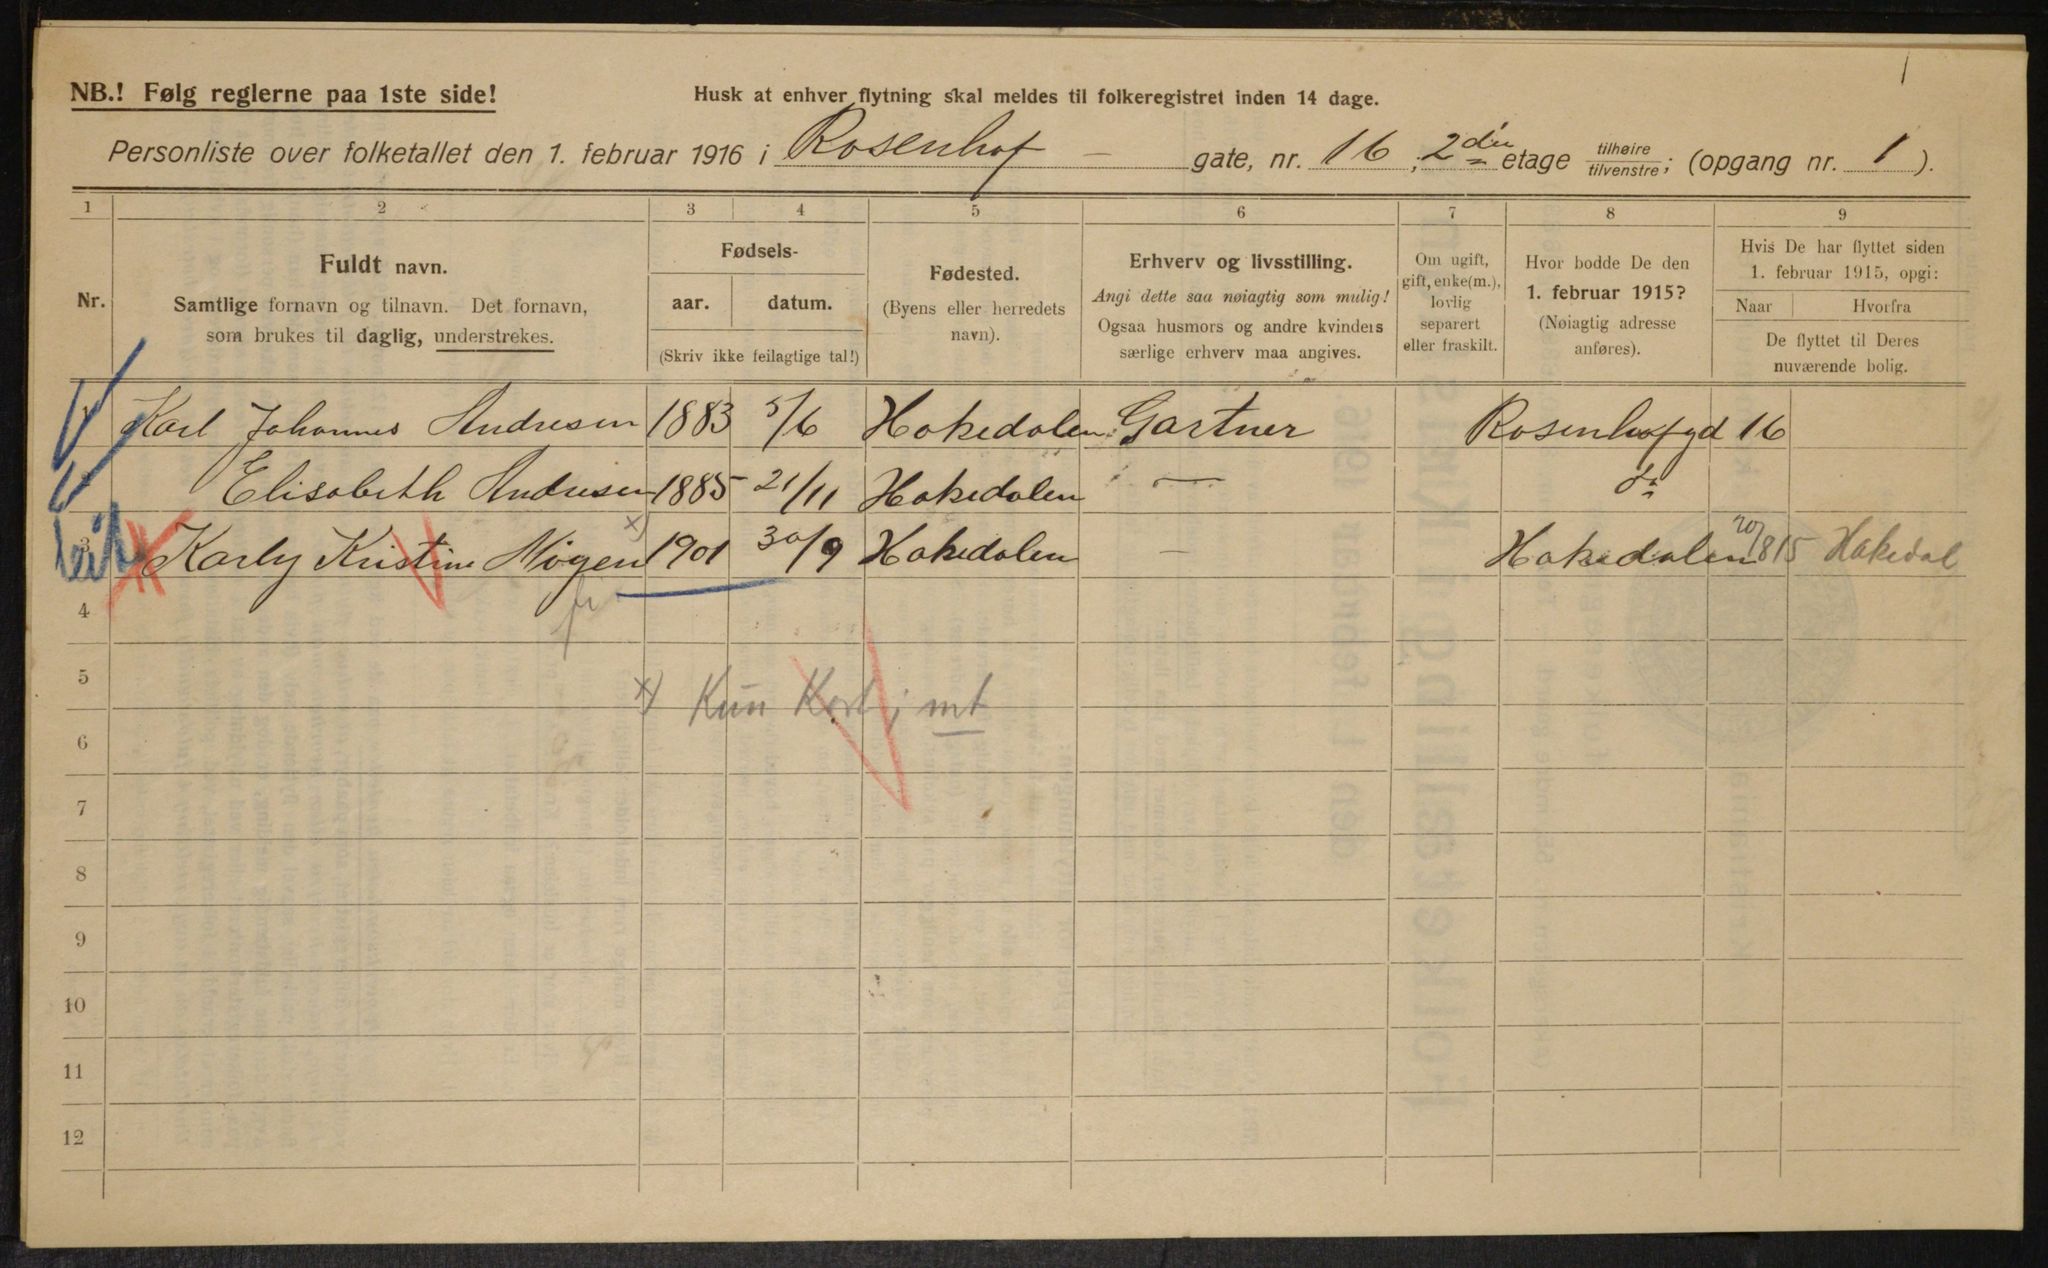 1
NB.! Følg reglerne paa 1ste side!
Husk at enhver flytning skal meldes til folkeregistret inden 14 dage.
Personliste over folketallet den 1. februar 1916 i Rosenhof - gate, nr. 16, 2den etage tilhøire/tilvenstre; (opgang nr. 1).
1 2 3 4 5 6 7 8 9
Nr.
Fuldt navn.
Samtlige fornavn og tilnavn. Det fornavn,
som brukes til daglig, understrekes.
Fødsels-
aar. datum.
(Skriv ikke feilagtige tal!)
Fødested.
(Byens eller herredets
navn).
Erhverv og livsstilling.
Angi dette saa nøiagtig som mulig!
Ogsaa husmors og andre kvinders
særlige erhverv maa angives.
Om ugift,
gift, enke(m.),
lovlig
separert
eller fraskilt.
Hvor bodde De den
1. februar 1915?
(Nøiagtig adresse
anføres).
Hvis De har flyttet siden
1. februar 1915, opgi:
Naar Hvorfra
De flyttet til Deres
nuværende bolig.
Karl Johannes Andresen 1883 5/6 Hakedalen Gartner Rosenhofgd 16
Elisabeth Andresen 1885 21/11 Hakedalen — do
3 Karly Kristine x) 1901 30/9 Hakedalen — Hakedalen 20/8 15 Hakedal
4
5
x) Kun Kort; mt
6
7
8
9
10
11
12